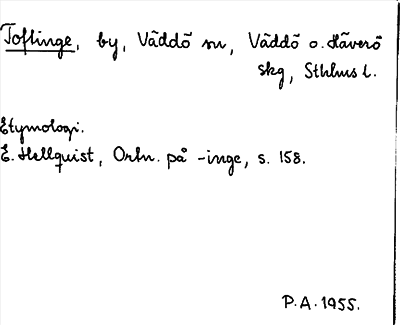 Toftinge, by, Väddö sn, Väddö o. Häverö
skg, Sthlms l.
Etymologi.
E. Hellquist, Ortn. på -inge, s. 158.
P.A. 1955.